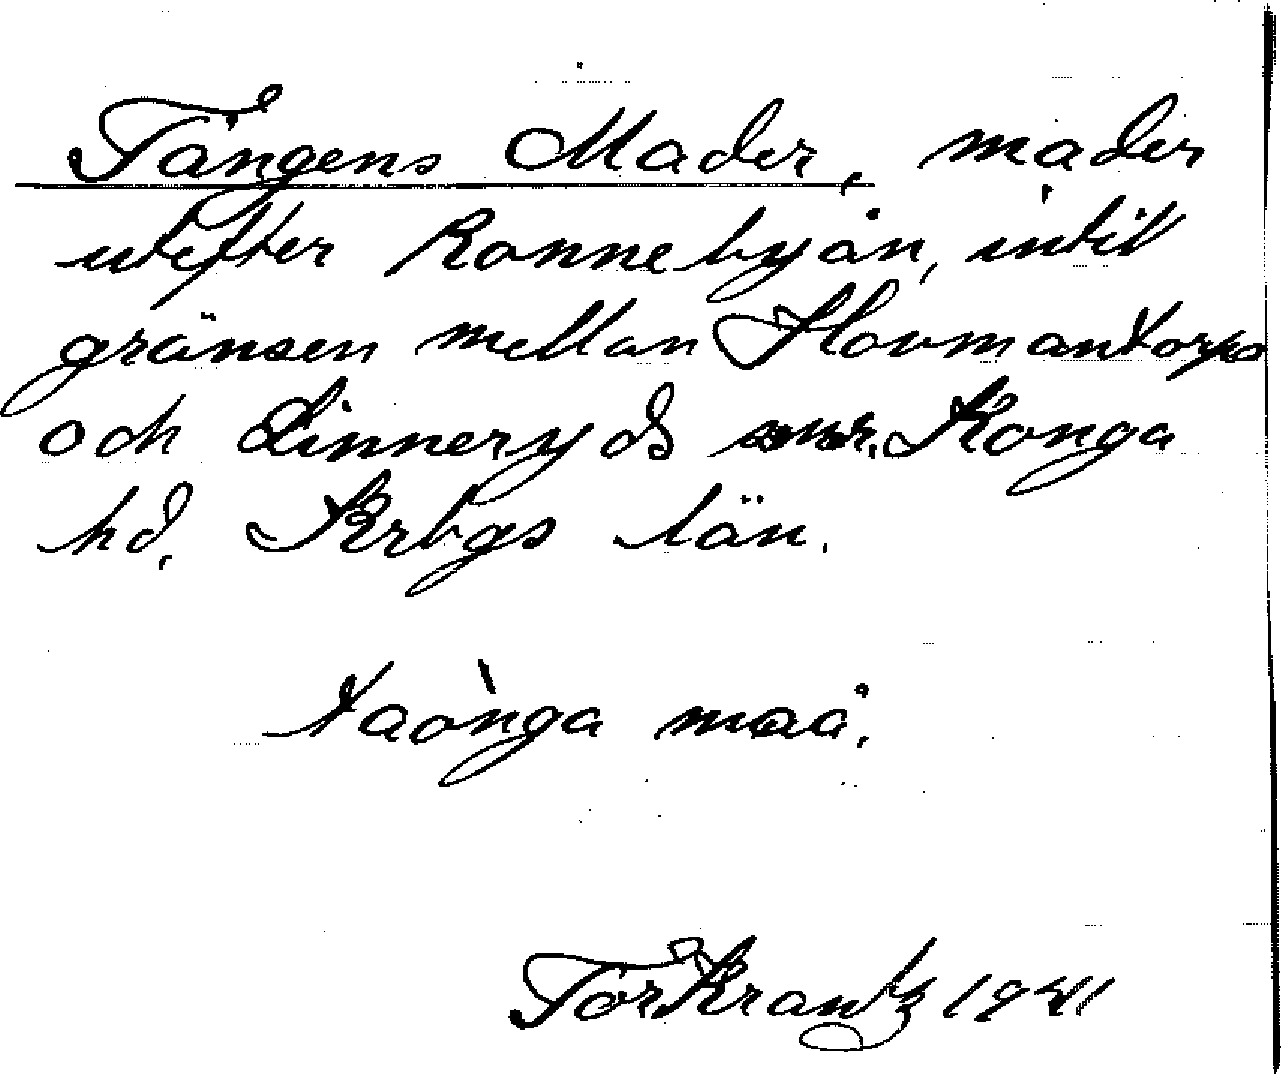 Tångens Mader, mader
utefter Ronnebyån, intill
gränsen mellan Hovmantorps
och Linneryds snr. Konga
hd, Krbgs län.
taònga maå.
Tor Krantz 1941